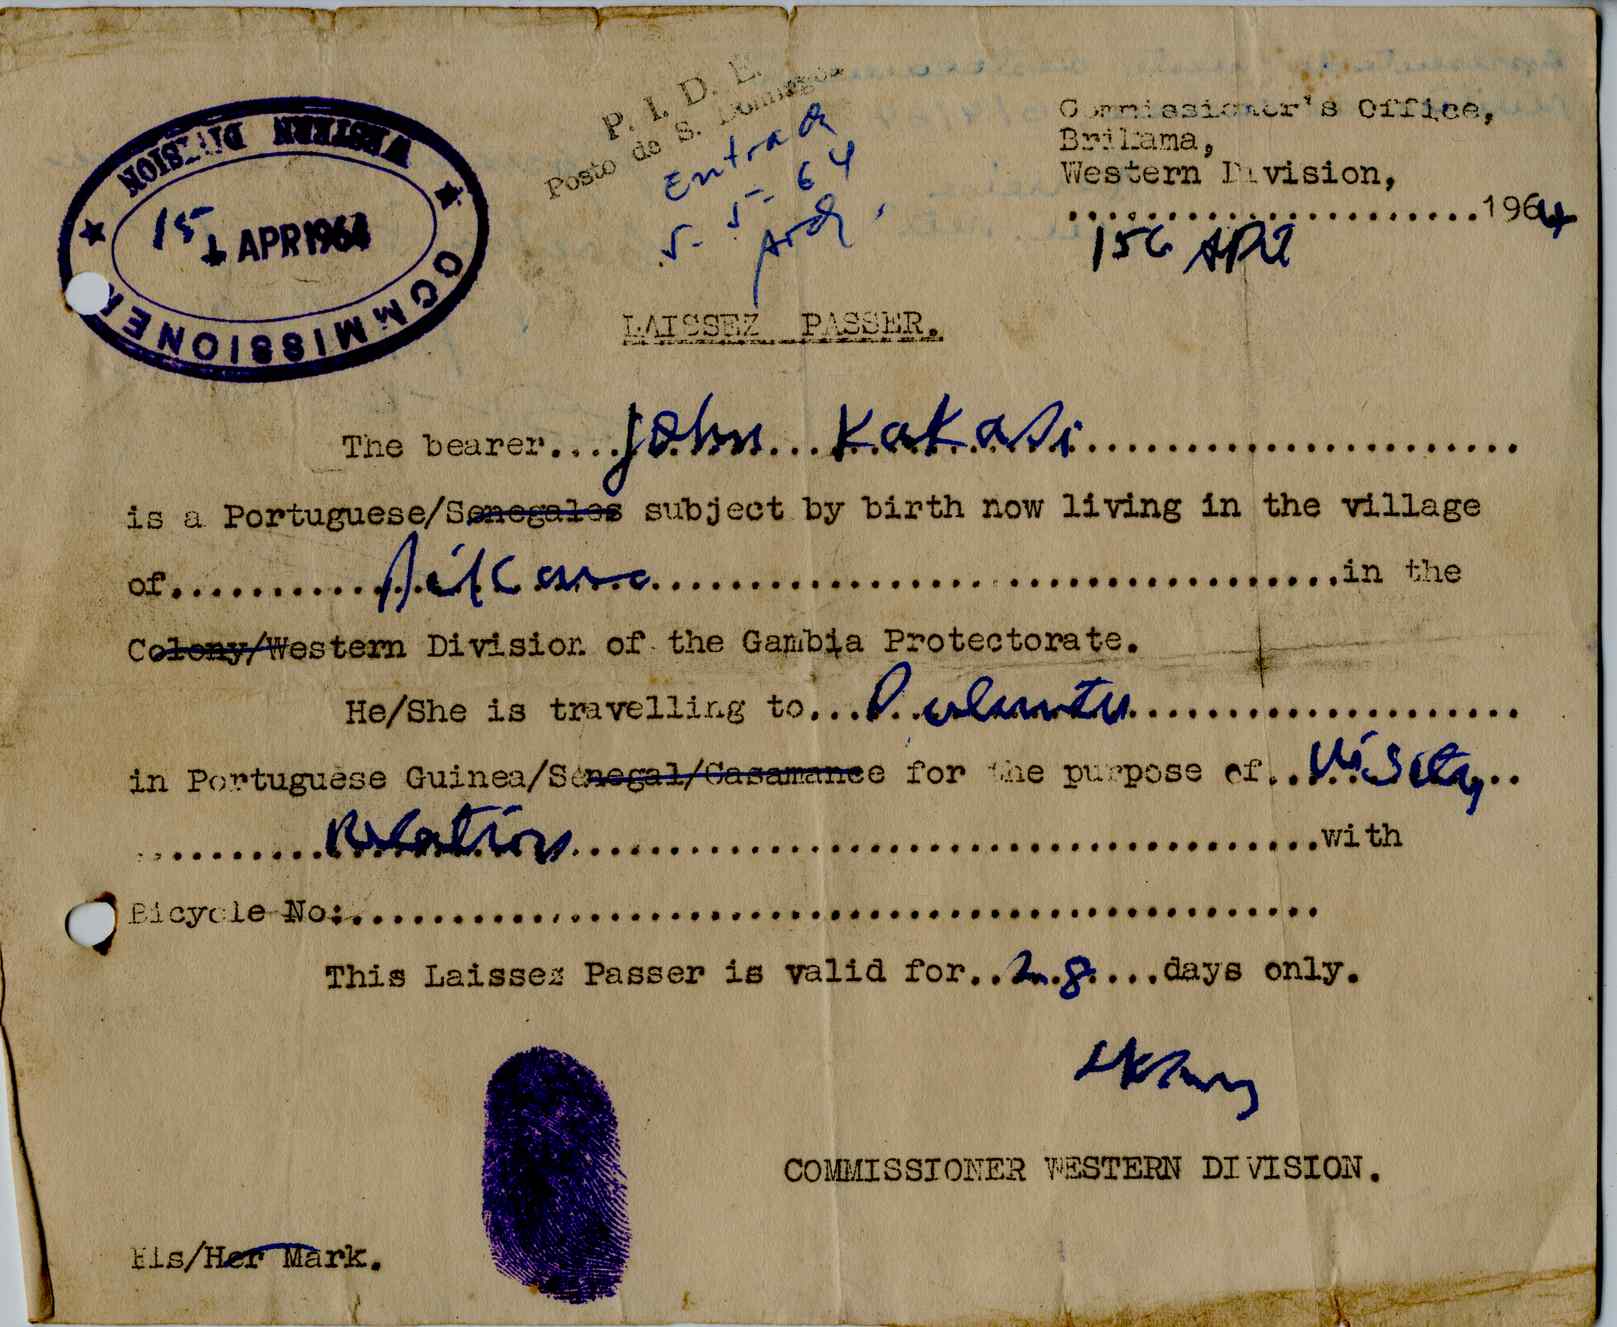 P. I. D. E.
Posto de S. Domingos
Entrada
5-5-64
Commissioner's Office,
Brikama,
Western Division,
......................1964
15 APR
WESTERN DIVISION
15 APR 1964
COMMISSIONER
LAISSEZ PASSER.
The bearer....John...Kakasi......................
is a Portuguese/Senegales subject by birth now living in the village
of....................................................in the
Colony/Western Division of the Gambia Protectorate.
He/She is travelling to.......................................
in Portuguese Guinea/Senegal/Casamance for the purpose of..Visity..
.........Relation......................................with
Bicycle No:.................................................
This Laissez Passer is valid for..28....days only.
COMMISSIONER WESTERN DIVISION.
His/Her Mark.